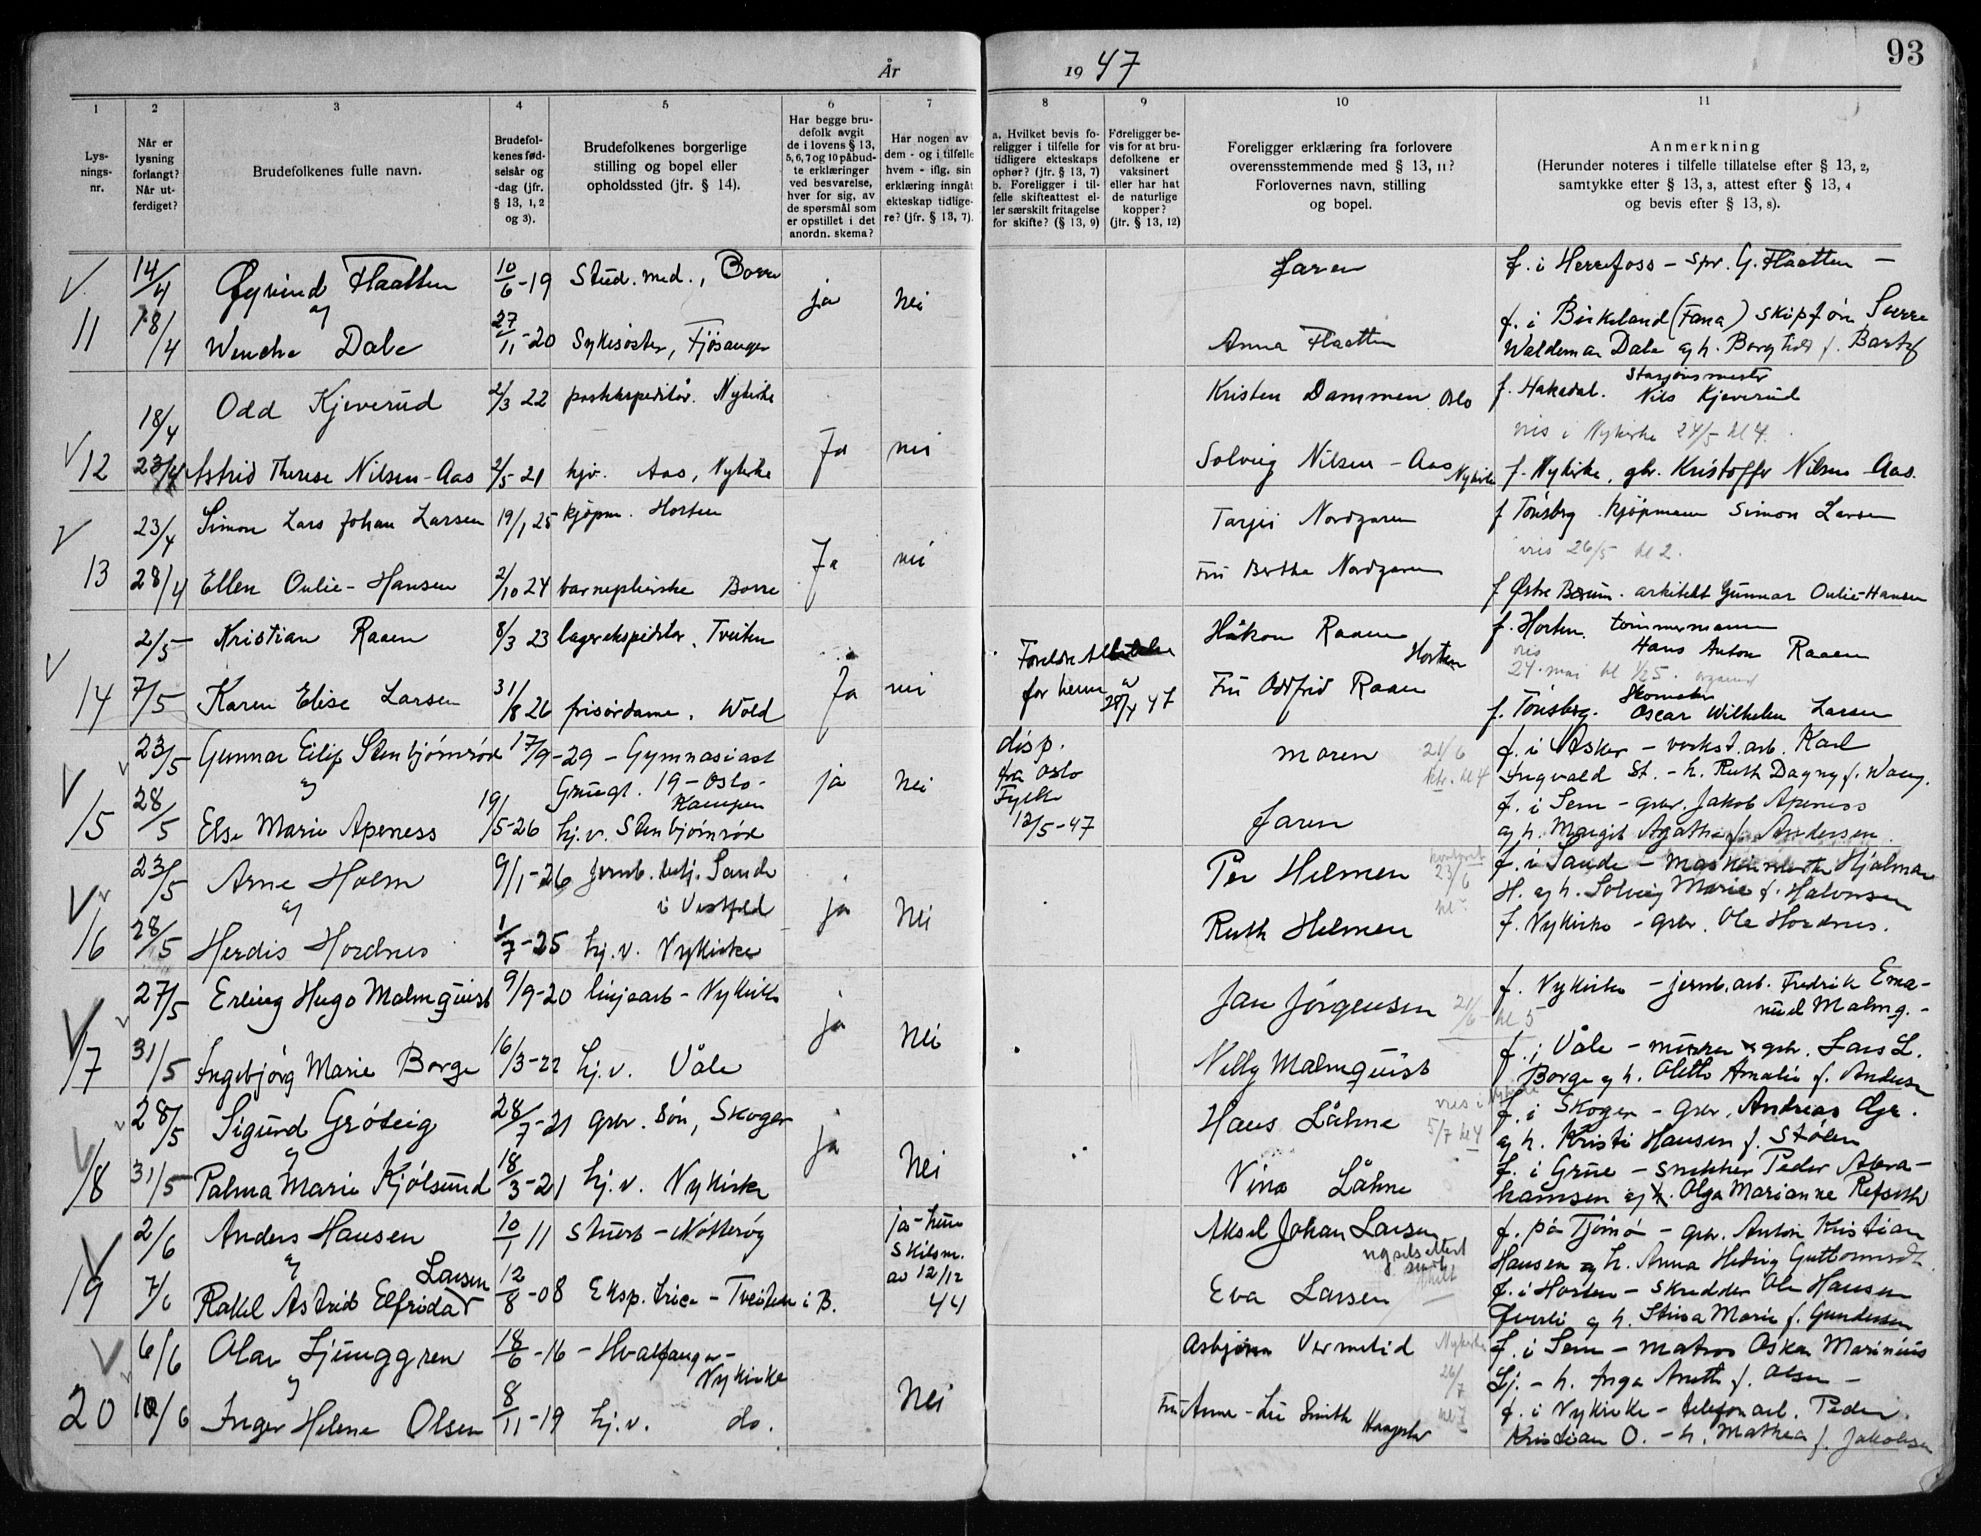 År 1947
93
1 2 3 4 5 6 7 8 9 10 11
Lys-
nings-
nr.
Når er
lysning
forlangt?
Når ut-
ferdiget?
Brudefolkenes fulle navn.
Brudefol-
kenes fød-
selsår og
-dag (jfr.
§ 13, 1, 2
og 3).
Brudefolkenes borgerlige
stilling og bopel eller
opholdssted (jfr. § 14).
Har begge bru-
defolk avgit
de i lovens § 13,
5, 6, 7 og 10 påbud-
te erklæringer
ved besvarelse,
hver for sig, av
de spørsmål som
er opstillet i det
anordn. skema?
Har nogen av
dem - og i tilfelle
hvem - iflg. sin
erklæring inngått
ekteskap tidlige-
re? (jfr. § 13, 7).
a. Hvilket bevis fo-
religger i tilfelle for
tidligere ekteskaps
ophør? (jfr. § 13, 7)
b. Foreligger i til-
felle skifteattest el-
ler særskilt fritagelse
for skifte? (§ 13, 9)
Foreligger be-
vis for at bru-
defolkene er
vaksinert
eller har hat
de naturlige
kopper?
(jfr. § 13, 12)
Foreligger erklæring fra forlovere
overensstemmende med § 13, 11?
Forlovernes navn, stilling
og bopel.
Anmerkning
(Herunder noteres i tilfelle tillatelse efter § 13, 2,
samtykke efter § 13, 3, attest efter § 13, 4
og bevis efter § 13, 8).
14/4 Øyvind Flaatten 10/6-19 Stud. med., Borre ja nei faren f. i Herefoss - spr. G. Flaatten -
og
11 18/4 Wenche Dale 27/11-20 Sykesøster, Fjøsanger Anna Flaatten f. i Birkeland (Fana) skipsfør Sverre
Waldemar Dale og h. Borghild f.
18/4 Odd Kjeverud 2/3 22 postekspeditør. Nykirke Ja nei Kristen Dammen Oslo f. Hakadal. Stasjonsmester
Nils Kjeverud
vies i Nykirke 24/5 kl 4.
12 23/4 Astrid Therese Nilsen-Aas 2/5-21 hjv. Aas, Nykirke Solveig Nilsen-Aas Nykirke f. Nykirke, gbr. Kristoffer Nilsen Aas.
23/4 Simon Lars Johan Larsen 19/1 25 kjøpm. Horten Ja nei Tarjei Nordgaren f Tønsberg kjøpmann Simon Larsen
vies 26/5 kl 2.
13 28/4 Ellen Oulie-Hansen 2/10 24 barnepleierske Borre Fru Bertha Nordgaren f Østre Bærum. arkitekt Gunnar Oulie-Hansen
2/5 Kristian Raaen 8/3 23 lagerekspeditør. Tveiten Ja nei Håkon Raaen Horten f. Horten. tømmermann
Hans Anton Raaen
vies
24. mai kl 1/2 5.
14 7/5 Karen Elise Larsen 31/8 26 frisørdame. Wold
for henne av 28/4 47
Fru Oddfrid Raaen f. Tønsberg. Skomaker
Oscar Wilhelm Larsen
23/5 Gunnar Eilif Stenbjørnrød 17/9-29 - Gymnasiast ja nei disp. moren 21/6 kl 4 f. i Asker - verkst.arb. Karl
og 19 - Oslo- Kampen fra Oslo Ingvald St. - h. Ruth Dagny f. Wang.
15 28/5 Else Marie Apeness 19/5-26 hj.v. Stenbjørnrød Fylke 12/5-47 faren f. i Sem - gbr. Jakob Apeness
og h. Margit Agathe f. Andersen
23/5 Arne Holm 9/1-26 jernb. betj. Sande ja nei Per Helmen 23/6 f. i Sande - Hjalmar
og i Vestfold H. og h. Solveig Marie f. Halvorsen
16 28/5 Herdis Hordnes 1/7-25 hj.v. Nykirke Ruth Helmen f. Nykirke - gbr. Ole Hordnes.
27/5 Erling Hugo Malmquist 9/9-20 linjearb - Nykirke ja nei Jan Jørgensen 21/6 kl 5 f. Nykirke - jernb.arb. Fredrik Ema-
nuel Malmq.-
17 31/5 Ingebjørg Marie Borge 16/3-22 hj.v. Våle Nelly Malmquist f. i Våle - murer gbr. Lars L.
Borge og h. Olette Amalie f. Andersen
28/5 Sigurd Grøteig 28/7-21 gbr. søn, Skoger ja nei Hans Låhne vies i Nykirke 5/7 kl 4 f. i Skoger - gbr. Andreas Gr.
og og h. Kristi Hansen f. Stølen
18 31/5 Palma Marie Kjølsund 18/3-21 hj.v. Nykirke Nina Låhne f. i Grue - snekker Peder Abra-
hamsen og h. Olga Marianne Refseth
2/6 Anders Hansen 10/1 11 stuert - Nøtterøy ja - hun Aksel Johan Larsen f. på Tjømø - gbr. Anton Kristian
og skilsm. Hansen og h. Anna Hedvig Guttormsdt.
19 7/6 Rakel Astrid Elfrida Larsen 12/8-08 Eksp.trice - Tveiten i B. av 12/12 44 Eva Larsen f. i Horten - skredder Ole Hansen
Øverli og h. Stina Marie f. Gundersen
6/6 Olav Ljunggren 18/6-16 - Hvalfanger- Nykirke nei Asbjørn Vermelid Nykirke 26/7 kl 7 f. i Sem - matros Oskar Marinius
og Lj. - h. Inga Aneth f. Olsen -
20 10/6 Inger Helene Olsen 8/11-19 hj.v. do. Fru Anne-Lie Smith f. i Nykirke - telefonarb. Peder
Kristian O. - h. Mathea f. Jakobsen